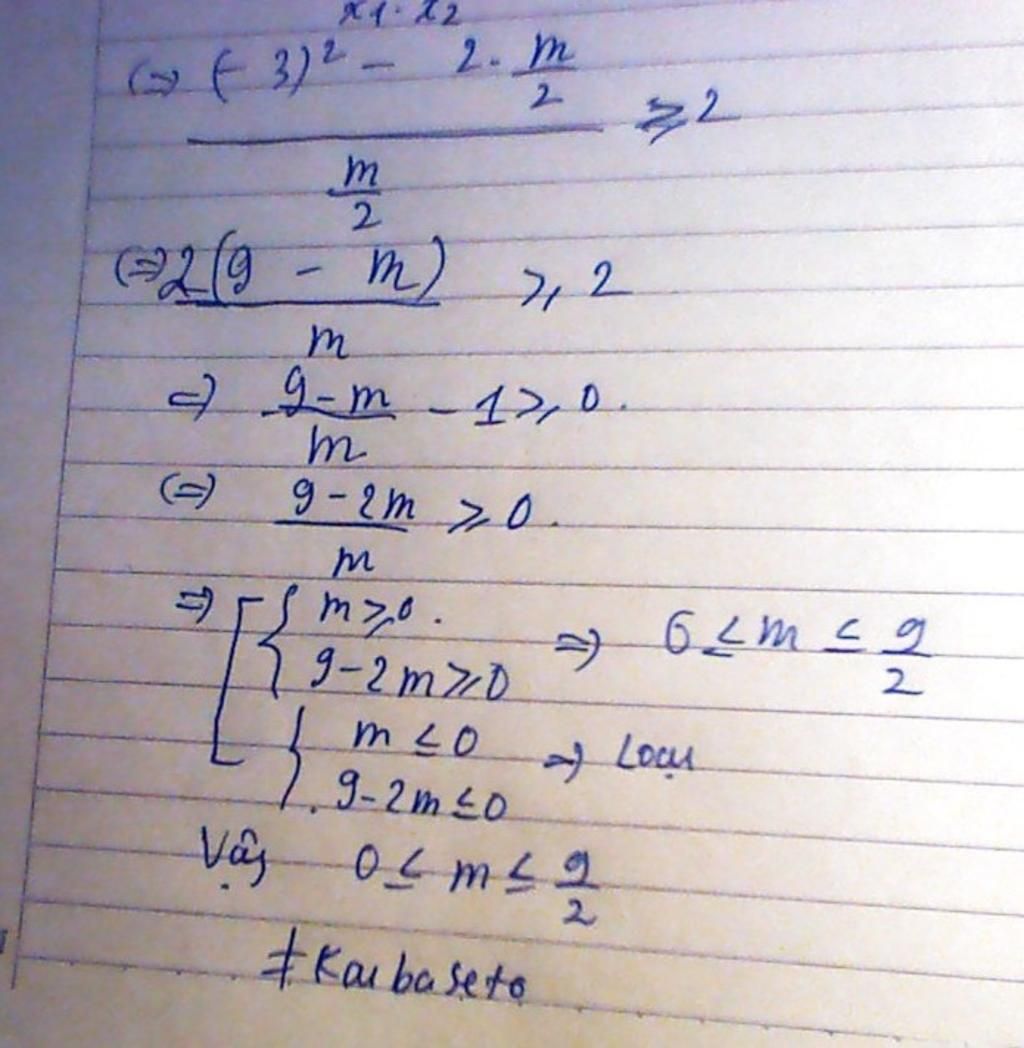 x1 . x2
(=> (-3)² - 2. m/2
⩾ 2
m/2
(=> 2(9 - m) ⩾ 2
m
=> 9-m/m - 1 ⩾ 0.
(=) 9-2m/m ⩾ 0.
=> [ { m ⩾ 0.
9-2m ⩾ 0 => 6 ≤ m ≤ 9/2
{ m ≤ 0
. 9-2m ≤ 0 => Loại
Vậy 0 ≤ m ≤ 9/2
≠Kaibaseto